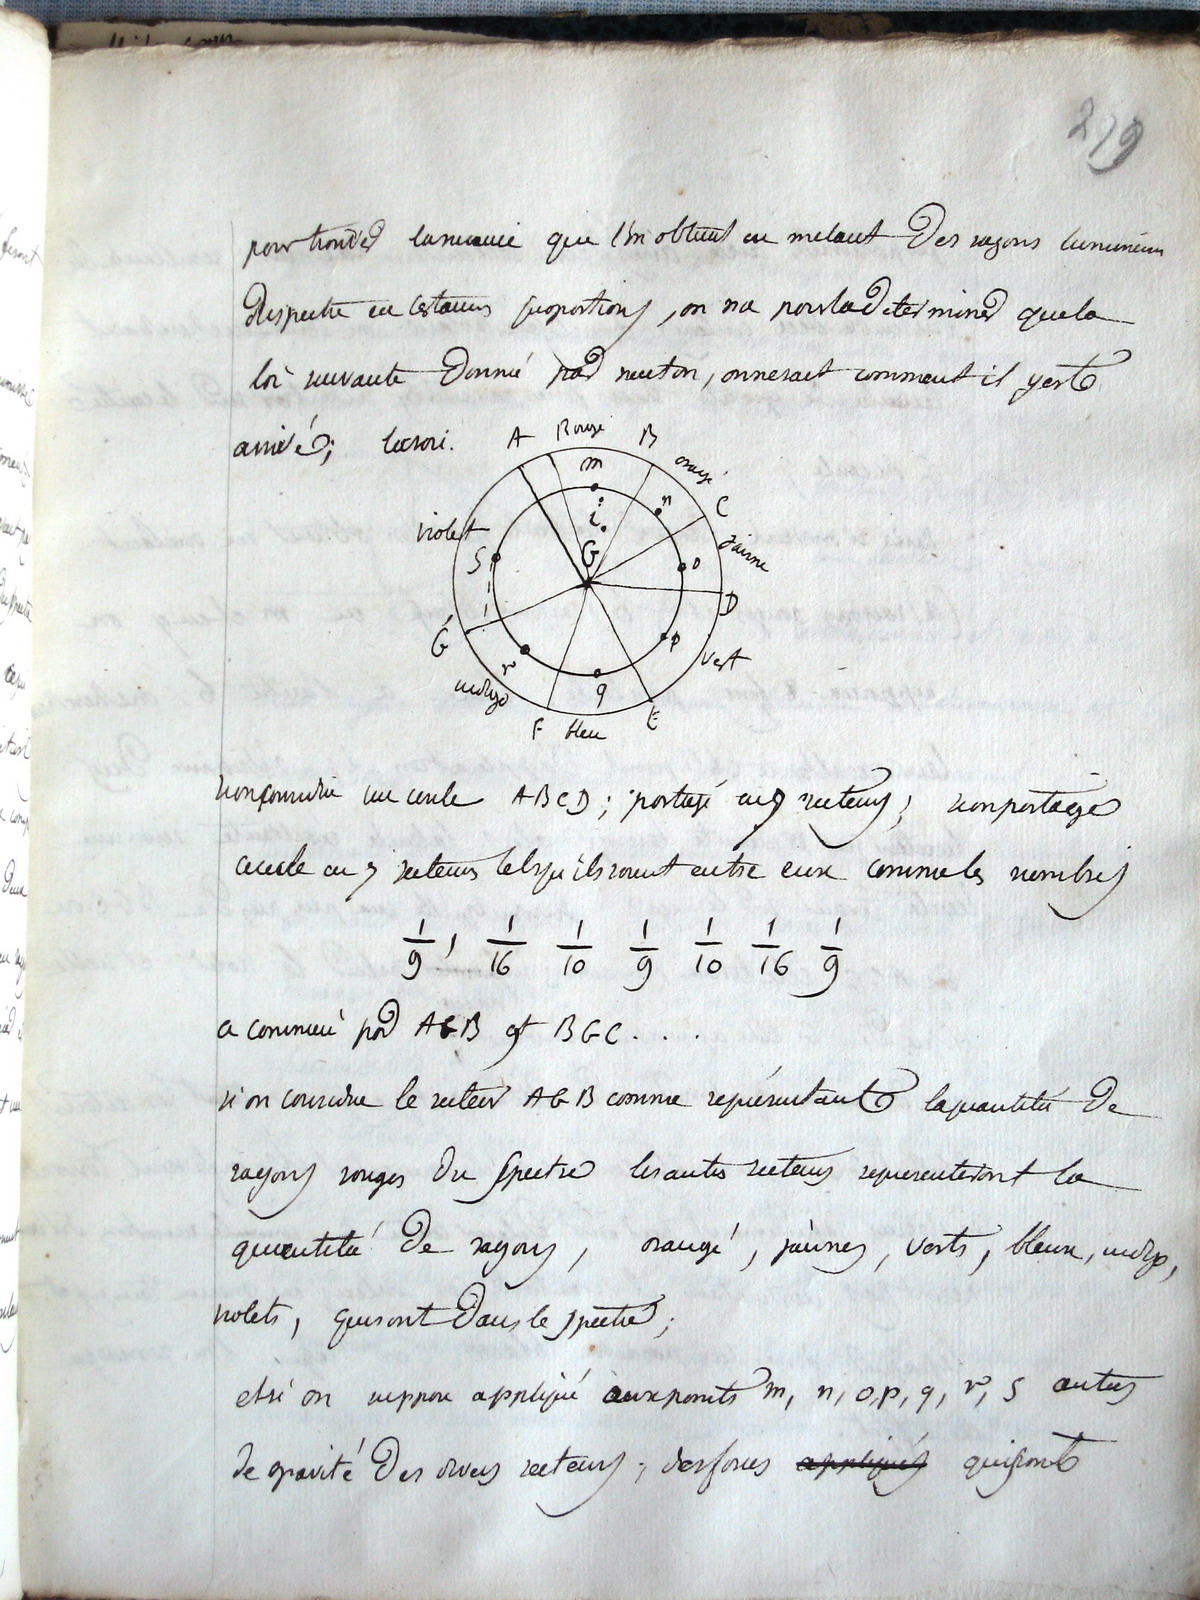 279
pour trouver la nuance que l'on obtient en melant des rayons lumineux
du spectre en certaines proportions, on n'a pour la determiner que la
loi suivante donné par newton, on ne sait comment il y est
arrivé; la voici.
A Rouge B orangé C jaune D vert E bleu F indigo G' violet
m n o p q r s
i
G
si on considere un cercle ABCD; partagé en 7 secteurs; si on partage
ce cercle en 7 secteurs tels qu'ils soient entre eux comme les nombres
1/9, 1/16 1/10 1/9 1/10 1/16 1/9
a commencé par AGB et BGC....
si on considere le secteur AGB comme représentant la quantité de
rayons rouges du spectre les autres secteurs representeront la
quantité de rayons, orangé, jaunes, verts, bleux, indigo,
violets, qui sont dans le spectre;
et si on suppose appliqué aux points m, n, o, p, q, r, s centres
de gravité des divers secteurs; des forces appliqués qui sont